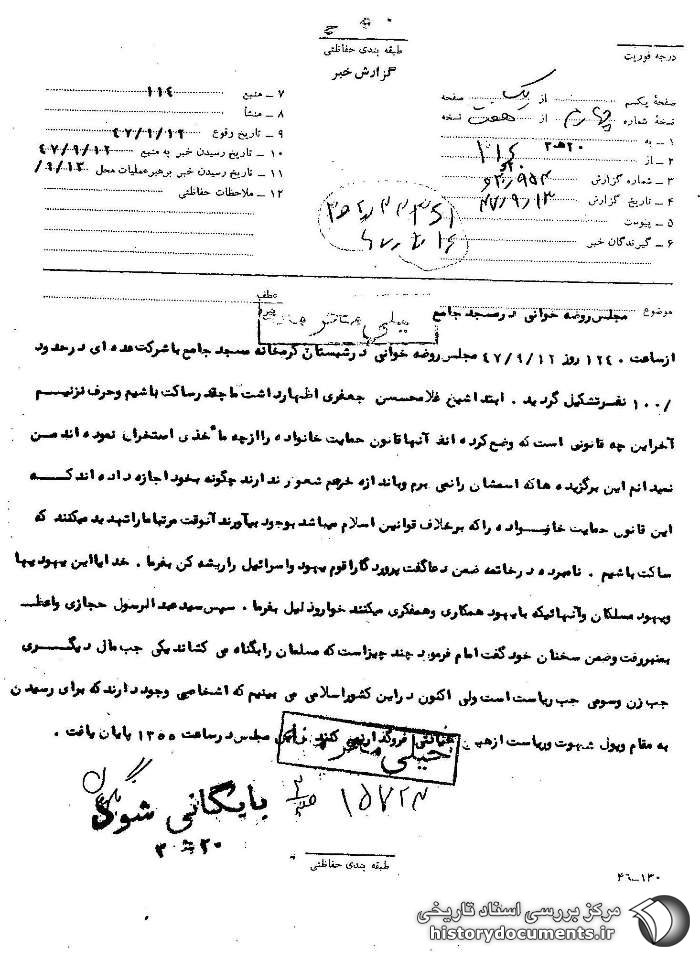 طبقه بندی حفاظتی
گزارش خبر
درجه فوریت
صفحهٔ یکم از یک صفحه
نسخهٔ شماره چهارم از هفت نسخه
۱ ـ به ۲۰ ﻫ ۳
۲ ـ از
۳ ـ شماره گزارش
۴ ـ تاریخ گزارش ۴۷/۹/۱۳
۵ ـ پیوست
۶ ـ گیرندگان خبر
۷ ـ منبع ۱۱۴
۸ ـ منشأ
۹ ـ تاریخ وقوع ۴۷/۹/۱۲
۱۰ ـ تاریخ رسیدن خبر به منبع ۴۷/۹/۱۲
۱۱ ـ تاریخ رسیدن خبر برهبر عملیات محل ۹/۱۳/
۱۲ ـ ملاحظات حفاظتی
عطف
موضوع مجلس روضه خوانی در مسجد جامع
خیلی محرمانه
از ساعت ۱۲۴۰ روز ۴۷/۹/۱۲ مجلس روضه خوانی در شبستان گرمخانه مسجد جامع با شرکت عده ای در حدود
۱۰۰/ نفر تشکیل گردید . ابتدا شیخ غلامحسن جعفری اظهار داشت ما چقدر ساکت باشیم و حرف نزنیم
آخر این چه قانونی است که وضع کرده اند آنها قانون حمایت خانواده را از چه مأخذی استخراج نموده اند من
نمیدانم این برگزیده ها که اسمشان را نمی برم و باندازه خرهم شعور ندارند چگونه بخود اجازه داده اند که
این قانون حمایت خانواده را که بر خلاف قوانین اسلام میباشد بوجود بیآورند آنوقت مرتبا ما را تهدید میکنند که
ساکت باشیم . نامبرده در خاتمه ضمن دعا گفت پروردگارا قوم یهود و اسرائیل را ریشه کن بفرما . خدایا این یهودیها
و یهود مسلکان و آنهائیکه با یهود همکاری و همفکری میکنند خوار و ذلیل بفرما . سپس سید عبدالرسول حجازی واعظ
بمنبر رفت و ضمن سخنان خود گفت امام فرمود چند چیز است که مسلمان را بگناه می کشاند یکی حب مال دیگری
حب زن و سومی حب ریاست است ولی اکنون در این کشور اسلامی می بینیم که اشخاصی وجود دارند که برای رسیدن
به مقام و پول شهوت و ریاست از هیچ جنایتی فروگذار نمی کنند مجلس در ساعت ۱۳۵۵ پایان یافت .
خیلی محرمانه
بایگانی شود
۲۰ ﻫ ۳
۱۵۷۲۴
طبقه بندی حفاظتی
۴۶ـ۱۳۰
مرکز بررسی اسناد تاریخی
historydocuments.ir